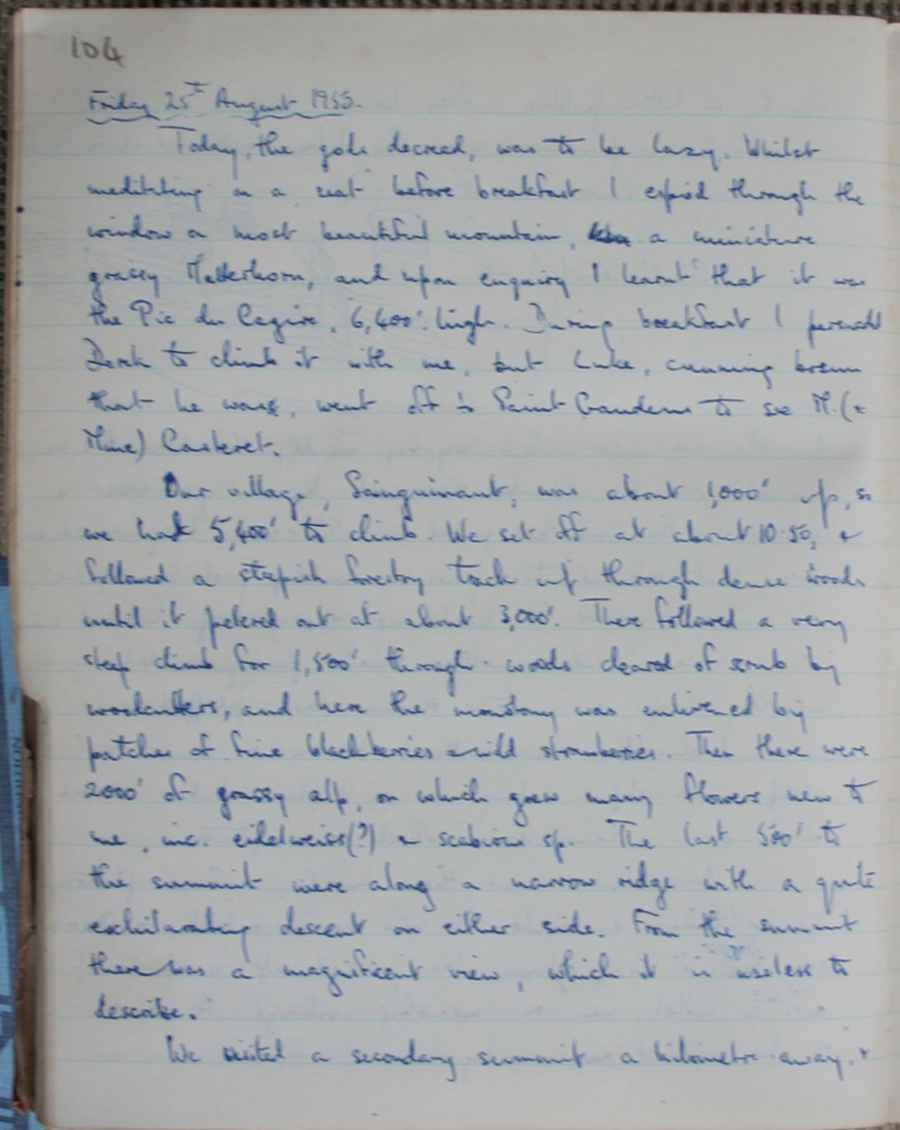 104
Friday 25th August 1955.
Today, the gods decreed, was to be lazy. Whilst
meditating on a seat before breakfast I espied through the
window a most beautiful mountain, a miniature
grassy Matterhorn, and upon enquiry I learnt that it was
the Pic du Cagire, 6,400' high. During breakfast I persuaded
Derek to climb it with me, but Luke, cunning
that he was, went off to Saint Gaudens to see M. (&
Mme) Casteret.
Our village, Sainguinant, was about 1,000' up, so
we had 5,400' to climb. We set off at about 10.50, &
followed a steepish forestry track up through dense woods
until it petered out at about 3,000'. There followed a very
steep climb for 1,500' through woods cleared of scrub by
woodcutters, and here the monotony was enlivened by
patches of fine blackberries & wild strawberries. Then there were
2000' of grassy alp, on which grew many flowers new to
me, inc. eidelweiss(?) & scabious sp. The last 500' to
the summit were along a narrow ridge with a quite
exhilarating descent on either side. From the summit
there was a magnificent view, which it is useless to
describe.
We visited a secondary summit a kilometre away, &